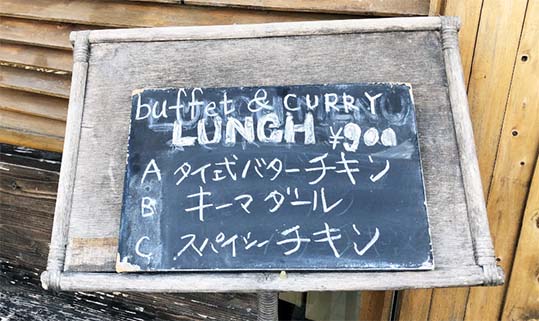 buffet & CURRY
LUNCH ¥900
A タイ式バターチキン
B キーマダール
C スパイシーチキン